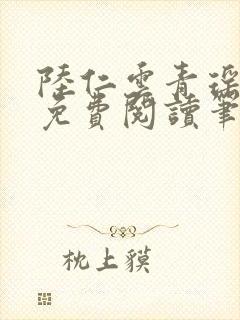 陸仁雲青瑤
免費閱讀筆
枕上貘